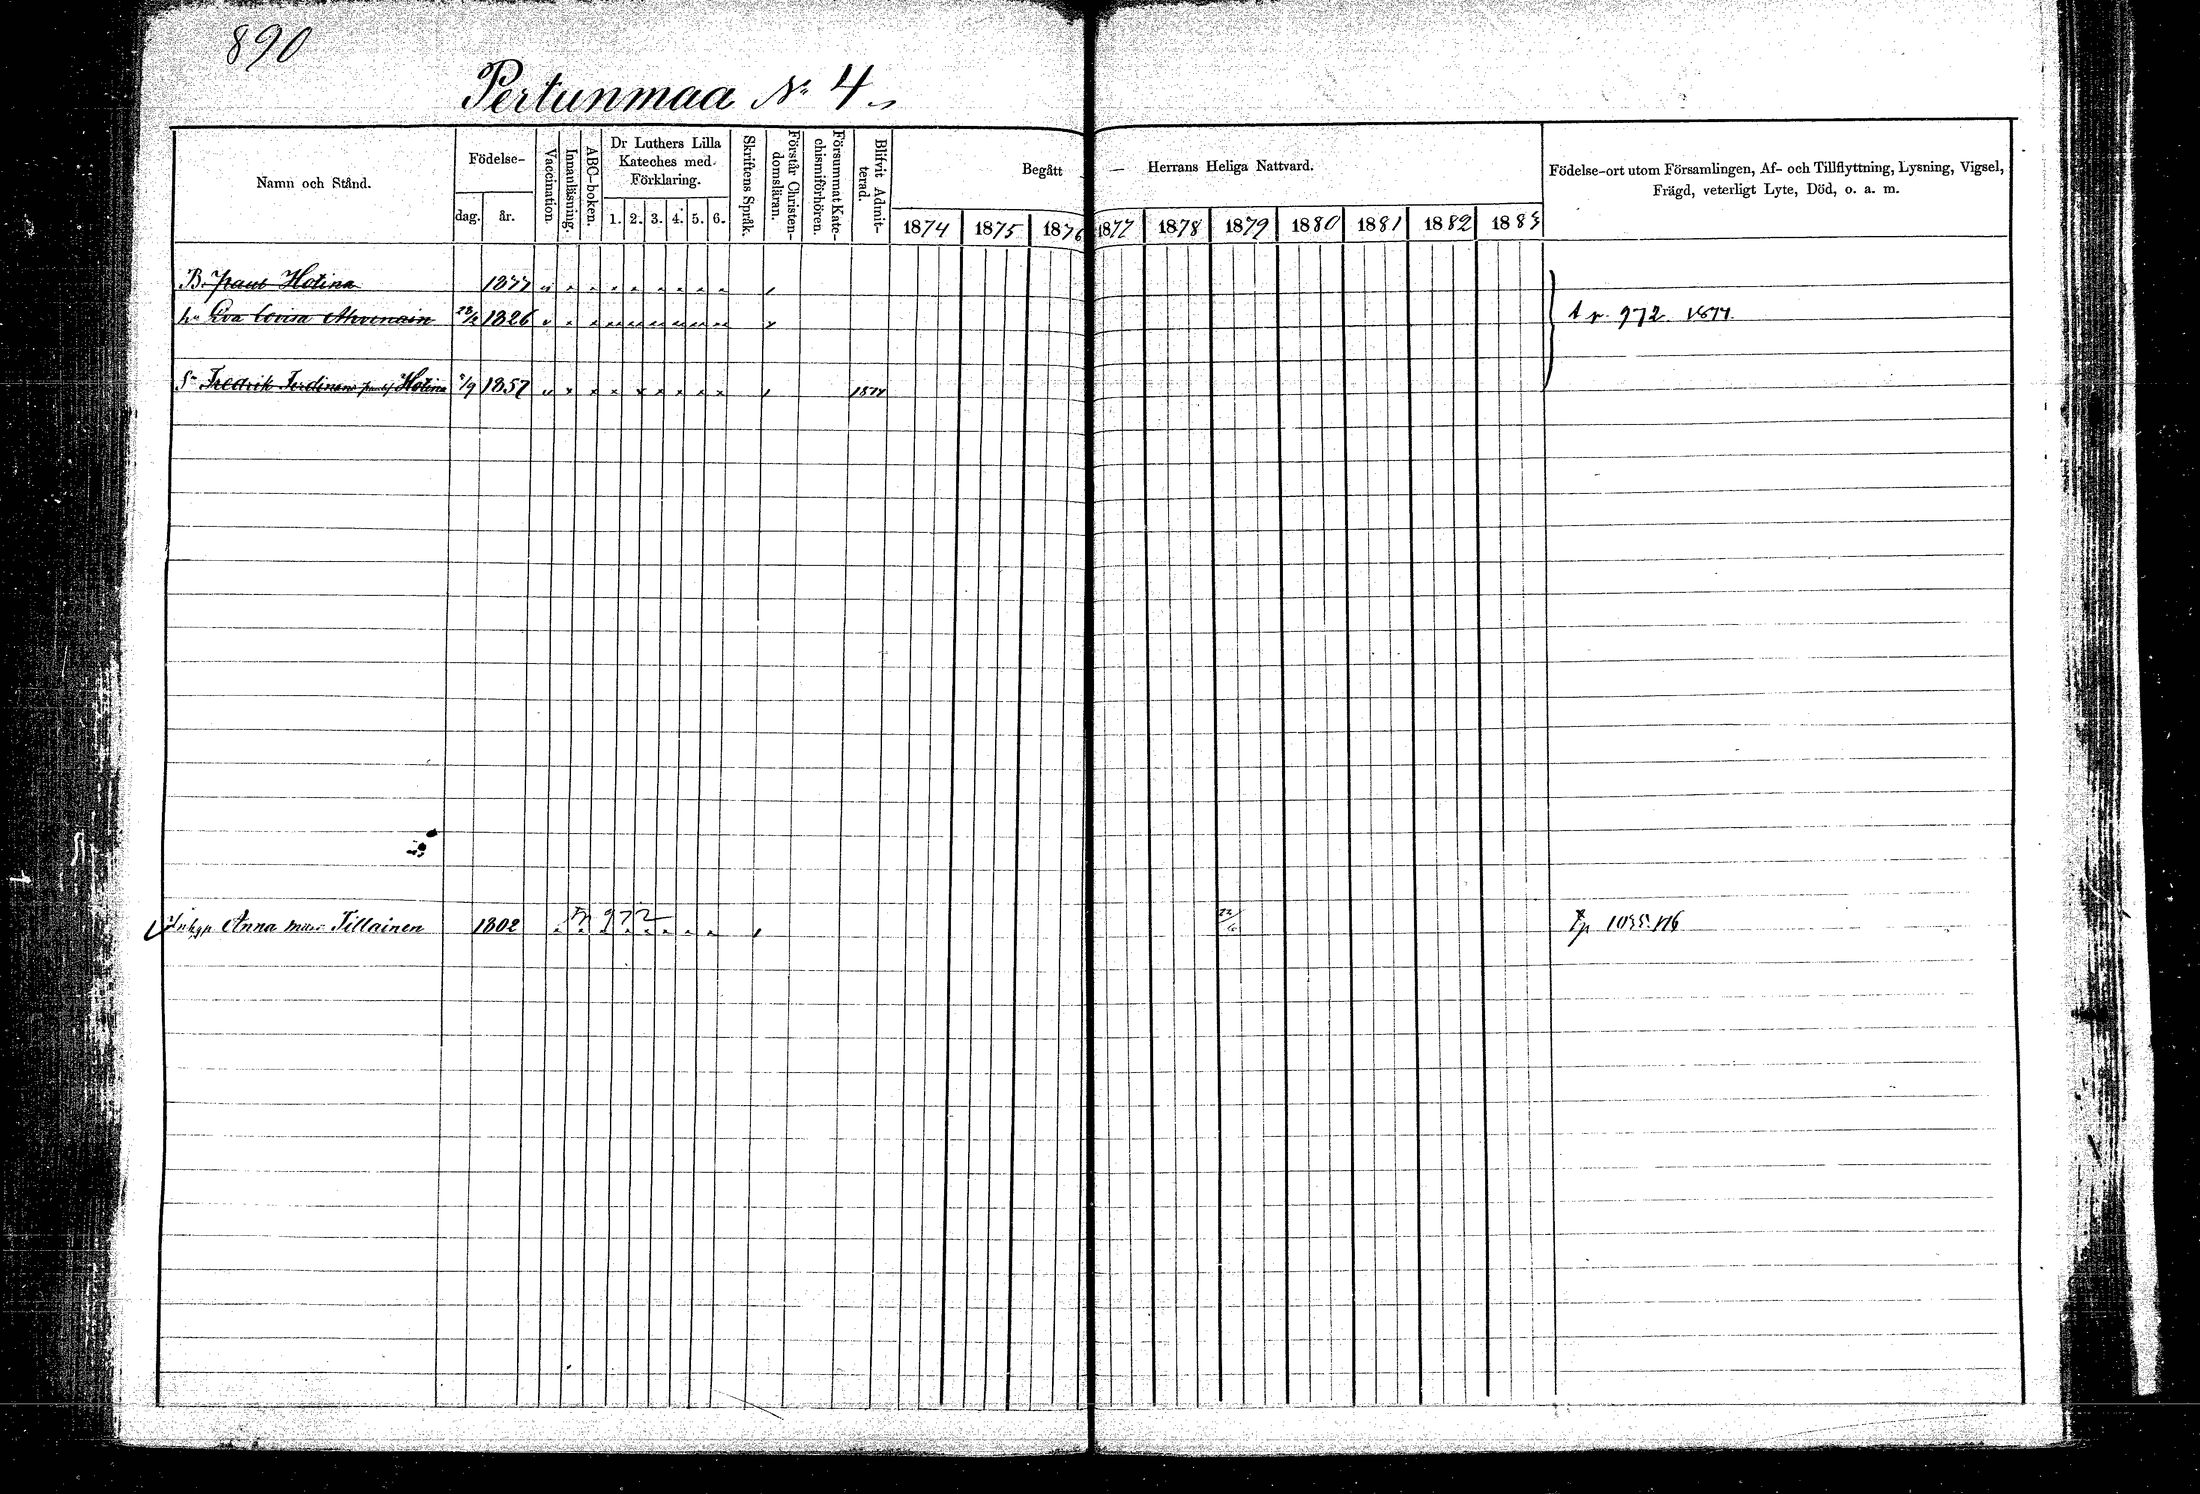 890
Pertunmaa No 4
Namn och Stånd.
Födelse-
dag.
år.
Vaccination.
Innanläsning.
ABC-boken.
Dr Luthers Lilla
Kateches med
Förklaring.
1. 2. 3. 4. 5. 6.
Skriftens Språk.
Förstår Christen-
domsläran.
Försummat Kate-
chismiförhören.
Blifvit Admit-
terad.
Begått — Herrans Heliga Nattvard.
1874 1875 1876 1877 1878 1879 1880 1881 1882 1883
Födelse-ort utom Församlingen, Af- och Tillflyttning, Lysning, Vigsel,
Frägd, veterligt Lyte, Död, o. a. m.
B. Hotina
hu Eva Lovisa 1826 972
Sn Fredrik Ferdinand Hotina 1857 1874
Anna Tillainen 1802 972